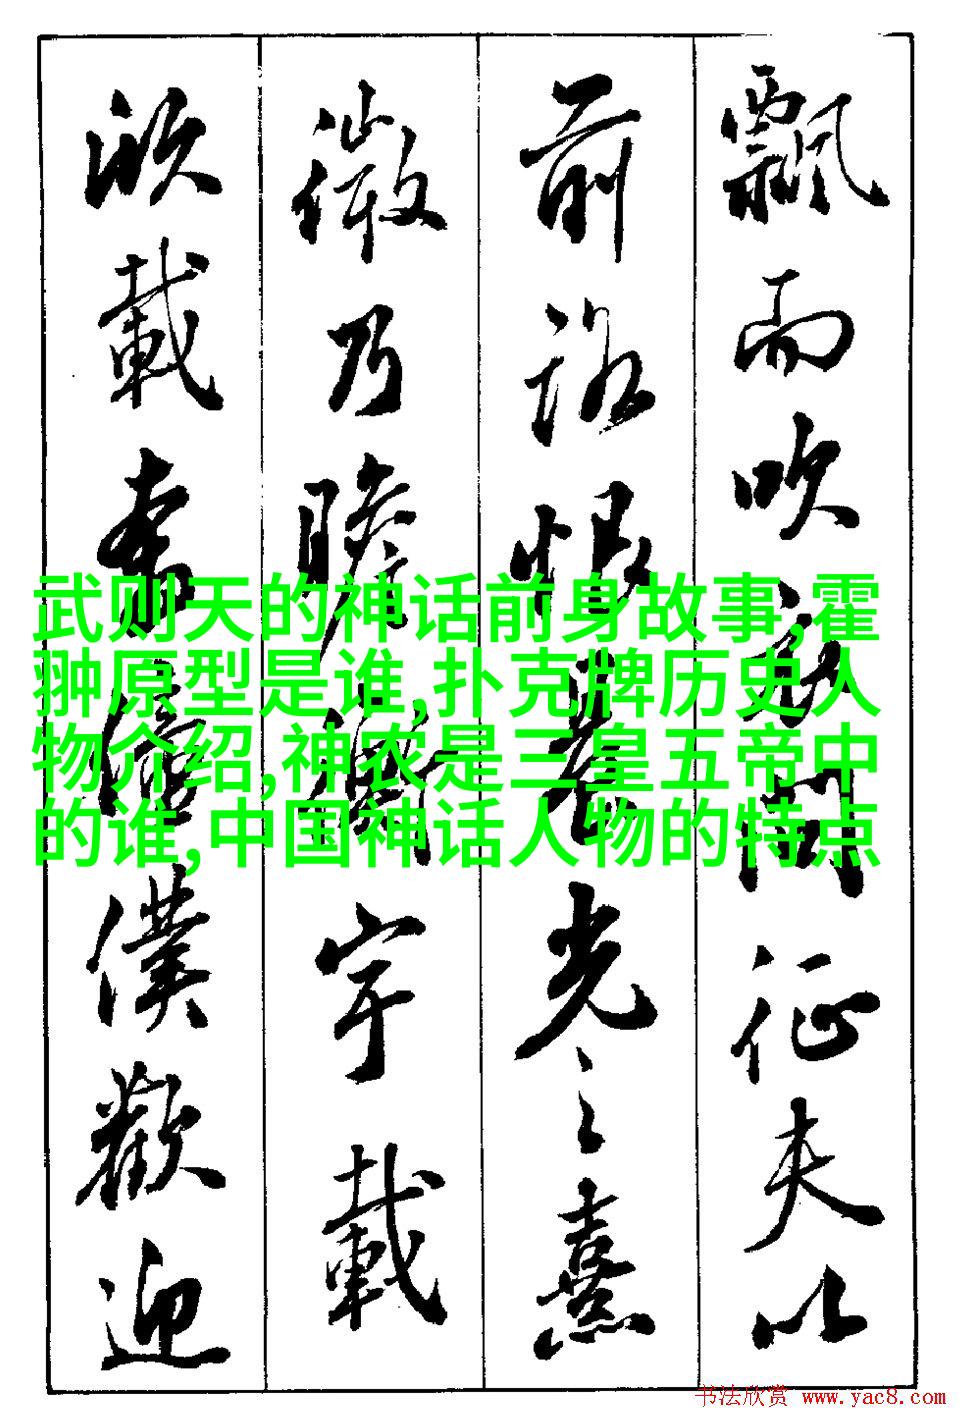 飄而吹衣問征夫以
前路恨晨光之熹
微乃瞻衡宇載
欣載奔僮僕歡迎
武则天的神话前身故事,霍
翀原型是谁,扑克牌历史人
物介绍,神农是三皇五帝中
的谁,中国神话人物的特点
书法欣赏 www.yac8.com